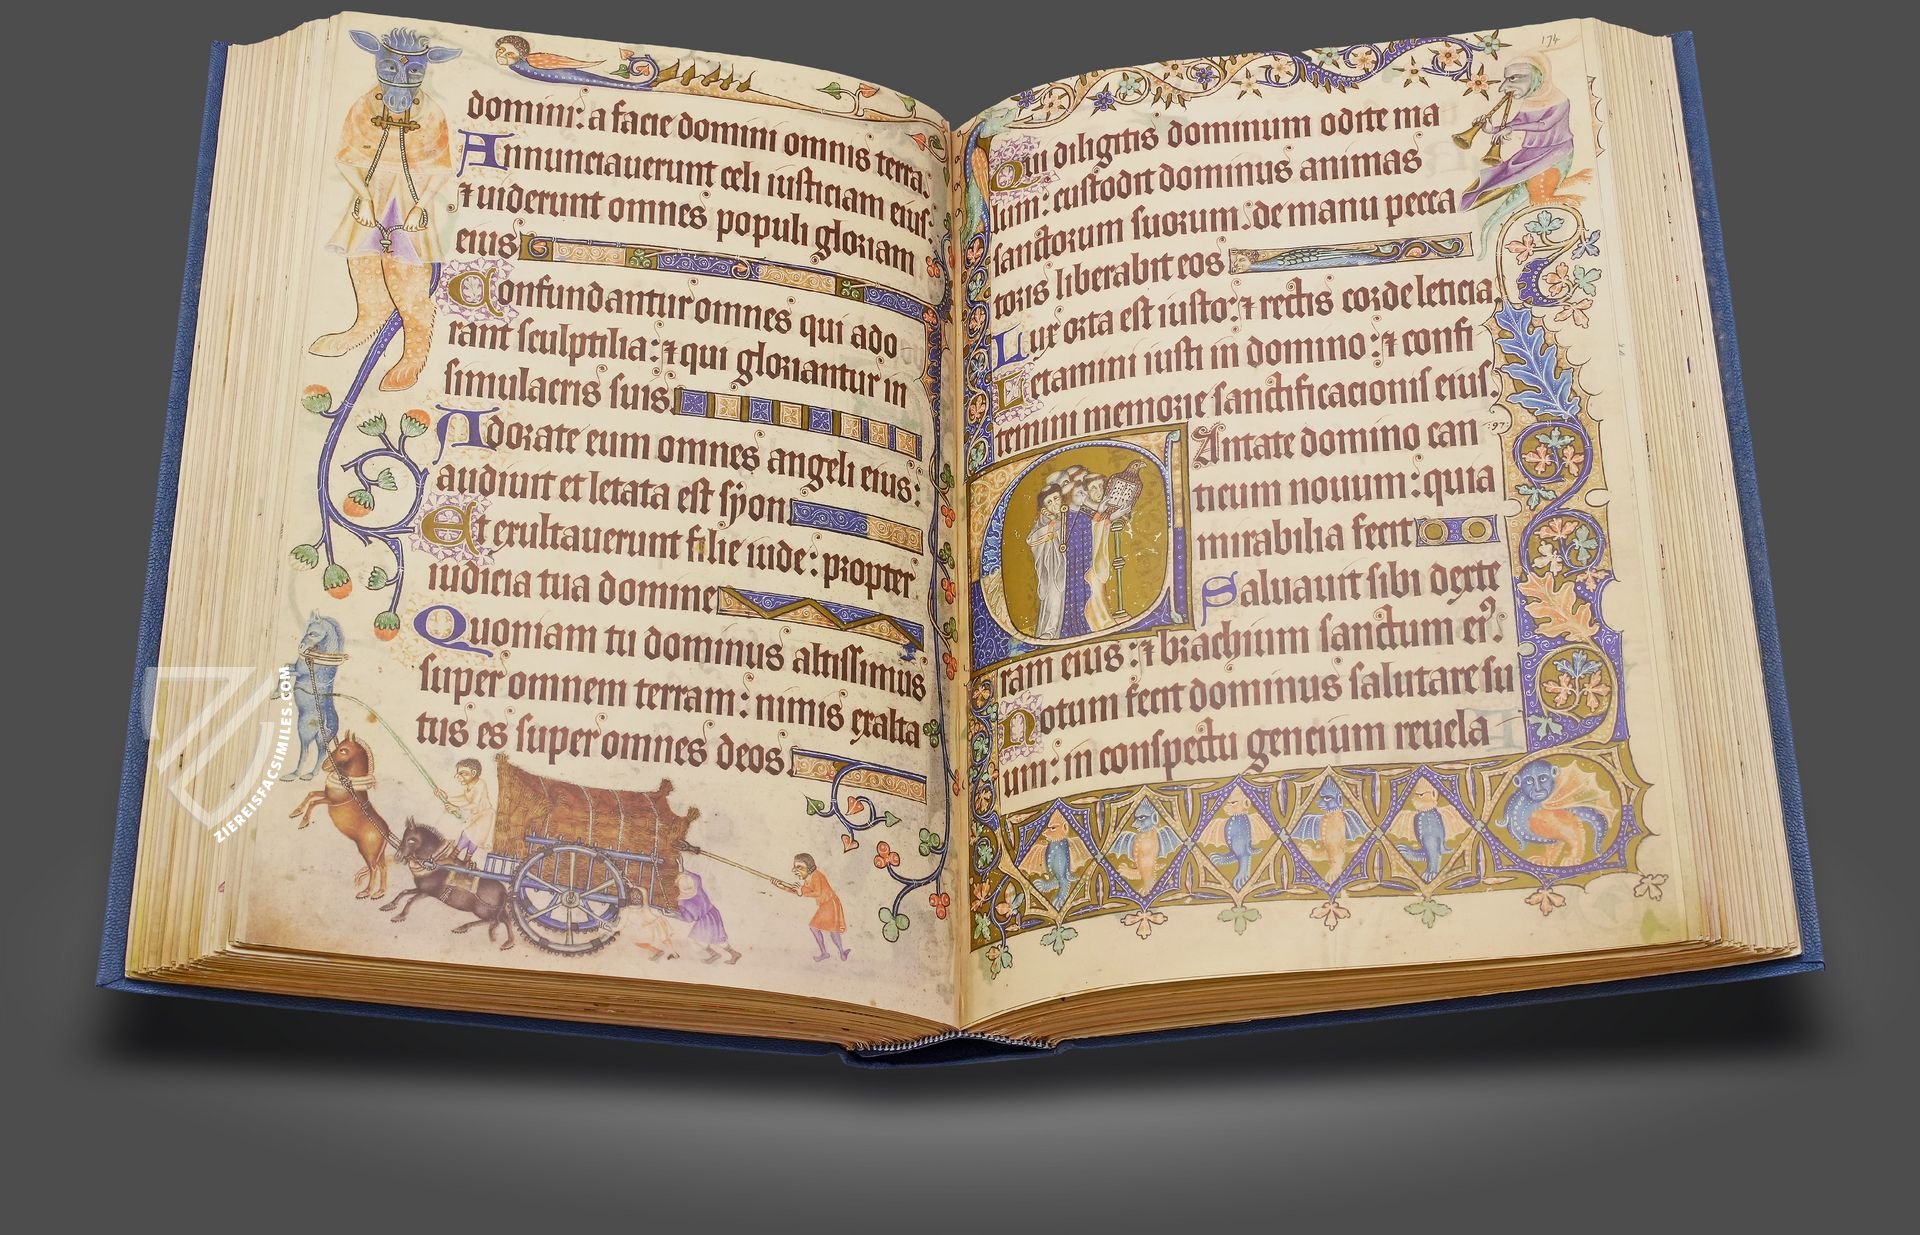 domini: a facie domini omnis terra.
Annunciauerunt celi iusticiam eius:
⁊ uiderunt omnes populi gloriam
eius
Confundantur omnes qui ado
rant sculptilia: ⁊ qui gloriantur in
simulacris suis.
Adorate eum omnes angeli eius:
audiuit et letata est syon.
Et exultauerunt filie iude: propter
iudicia tua domine
Quoniam tu dominus altissimus
super omnem terram: nimis exalta
tus es super omnes deos
174
Qui diligitis dominum odite ma
lum: custodit dominus animas
sanctorum suorum. de manu pecca
toris liberabit eos
Lux orta est iusto: ⁊ rectis corde leticia.
Letamini iusti in domino: ⁊ confi
temini memorie sanctificacionis eius.
Cantate domino can
97
ticum nouum: quia
mirabilia fecit
Saluauit sibi dexte
ram eius: ⁊ brachium sanctum ei⁹.
Notum fecit dominus salutare su
um: in conspectu gencium reuela
ZIEREISFACSIMILES.COM